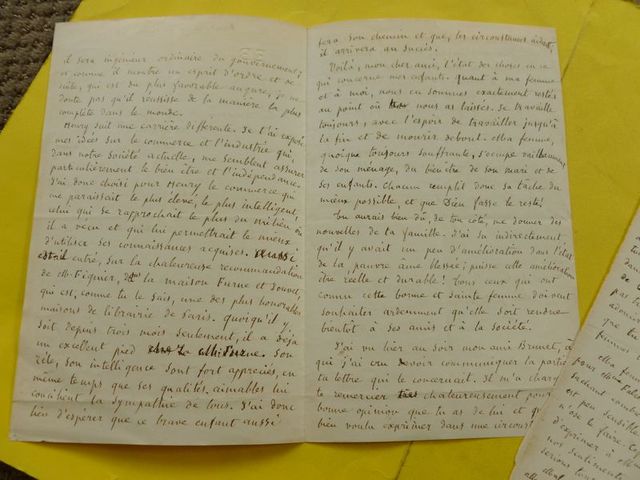 il sera ingénieur ordinaire du gouvernement;
et comme il montre un esprit d'ordre et de
suite, qui est du plus favorable augure, je ne
doute pas qu'il réussisse de la manière la plus
complète dans le monde.
Henry suit une carrière différente. Je t'ai exposé
mes idées sur le commerce et l'industrie qui,
dans notre société actuelle, me semblent assurer
particulièrement le bien être et l'indépendance.
J'ai donc choisi pour Henry le commerce qui
me paraissait le plus élevé, le plus intelligent,
celui qui se rapprochait le plus du milieu où
il a vécu et qui lui permettrait le mieux
d'utiliser ses connaissances acquises.
est-il entré, sur la chaleureuse recommandation
de M. Figuier, dans la maison Furne et Jouvet,
qui est, comme tu le sais, une des plus honorables
maisons de librairie de Paris. Quoiqu'il y
soit depuis trois mois seulement, il a déjà
un excellent pied chez M. Furne. Son
zèle, son intelligence sont fort appréciés, en
même temps que ses qualités aimables lui
concilient la sympathie de tous. J'ai donc
lieu d'espérer que ce brave enfant aussi
fera son chemin et que, les circonstances aidant,
il arrivera au succès.
Voilà, mon cher ami, l'état des choses en ce
qui concerne mes enfants. Quant à ma femme
et à moi, nous en sommes exactement restés
au point où nous as laissés. Je travaille
toujours, avec l'espoir de travailler jusqu'à
la fin et de mourir debout. Ma femme,
quoique toujours souffrante, s'occupe vaillamment
de son ménage, du bien être de son mari et de
ses enfants. Chacun remplit donc sa tâche du
mieux possible, et que Dieu fasse le reste!
Tu aurais bien dû, de ton côté, me donner des
nouvelles de ta famille. J'ai su indirectement
qu'il y avait un peu d'amélioration dans l'état
de la pauvre âme blessée; puisse cette amélioration
être réelle et durable! Tous ceux qui ont
connu cette bonne et sainte femme doivent
souhaiter ardemment qu'elle soit rendue
bientôt à ses amis et à la société!
J'ai vu hier au soir mon ami Brunet, à
qui j'ai cru devoir communiquer la partie
ta lettre qui le concernait. Il m'a chargé
te remercier chaleureusement pour
bonne opinion que tu as de lui et que
bien voulu exprimer dans une circonst